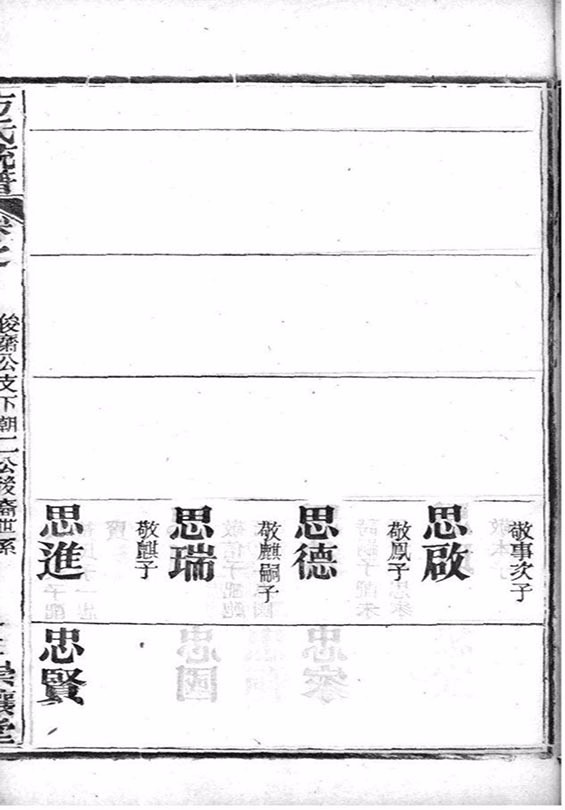 敬事次子
思啟
敬鳳子
思德
敬麒嗣子
思瑞
敬麒子
思進
忠賢
方氏統譜
俊齋公支下朝二公後裔世系